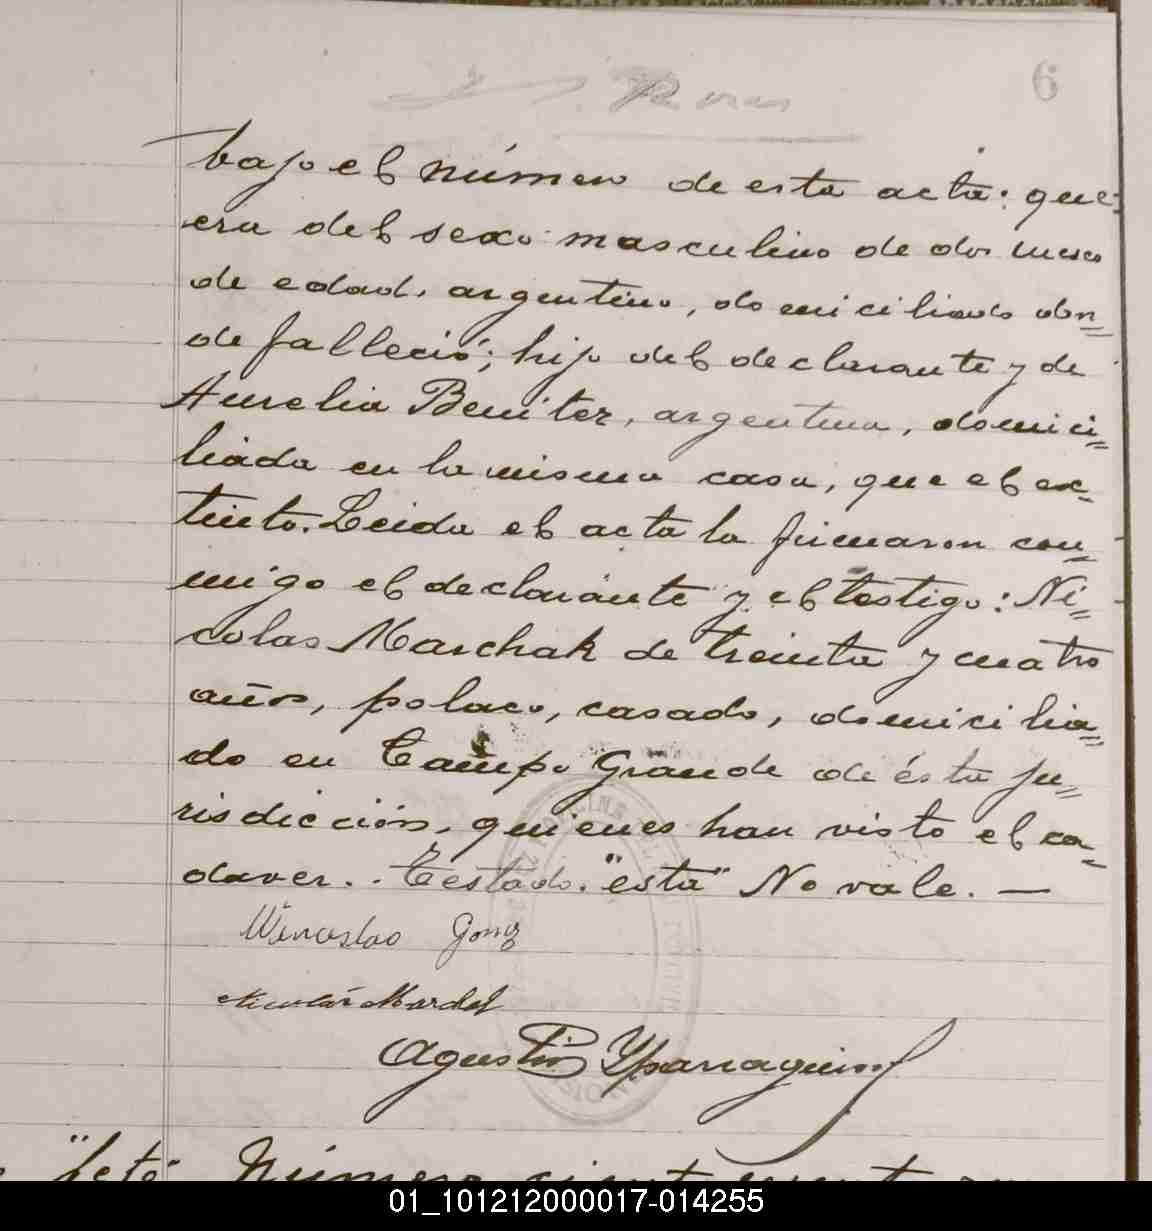 6
bajo el número de esta acta: que
era del sexo masculino de dos meses
de edad, argentino, domiciliado don=
de falleció; hijo del declarante y de
Aurelia Benitez, argentina, domici=
liada en la misma casa, que el ex=
tinto. Leida el acta la firmaron con=
migo el declarante y el testigo: Ni=
colas Marchak de treinta y cuatro
años, polaco, casado, domicilia=
do en Campo Grande de ésta ju=
risdicción, quienes han visto el ca=
daver. - Testado. "esta" No vale. —
Wenceslao
Nicolás
Agustin
Número
01_101212000017-014255